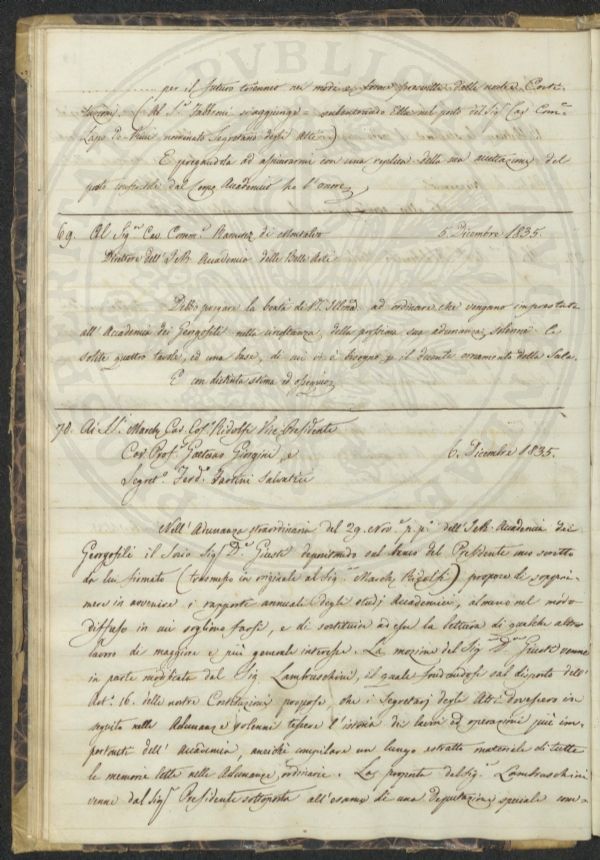 per il futuro tenneo nei modi e forme prescritte dalle nostre Costi-
tuzioni. (Al S.r Fabbroni si aggiunge = subentrando Ella nel posto del Sig.r Cav. Com.re
Lapo de Ricci nominato Segretario degli Atti =)
E pregandola ad assicurarmi con una replica della sua accettazione del
posto conferitole dal Corpo Accademico ho l'onore
69. Al Sig.re Cav. Comm.e Ramirez di Montalvo 6. Dicembre 1835.
Direttore dell'I. e R. Accademia delle Belle Arti
Debbo pregare la bontà di V.S. Illma ad ordinare che vengano imprestate
all'Accademia dei Georgofili nella circostanza della prossima sua adunanza solenne le
solite quattro tavole, ed una base, di cui vi è bisogno p. il decente ornamento della Sala.
E con distinta stima ed ossequio
70. Ai SS.ri March. Cav. Cos.o Ridolfi Vice-Presidente
Cav. Prof.e Gaetano Giorgini, e 6. Dicembre 1835.
Segret.o Ferd.o Tartini Salvatici
Nell'Adunanza straordinaria del 29. Nov.e p.p.o dell'I. e R. Accademia dei
Georgofili il Socio Sig.r D.r Giusti depositando sul banco del Presidente uno scritto
da lui firmato (trasmesso in originale al Sig.re March. Ridolfi) propose di soppri-
mere in avvenire i rapporti annuali degli studj Accademici, almeno nel modo
diffuso in cui soglionsi farsi, e di sostituire ad essi la lettura di qualche altro
lavoro di maggiore e più generale interesse. La mozione del Sig.r D.r Giusti venne
in parte modificata dal Sig. Lambruschini, il quale fondandosi sul disposto dell'
Art.o 16. delle nostre Costituzioni propose, che i Segretarj degli Atti dovessero in
seguito nelle Adunanze solenni tessere l'istoria dei lavori ed operazioni più im-
portanti dell'Accademia, anziché compilare un lungo estratto materiale di tutte
le memorie lette nelle Adunanze ordinarie. La proposta del Sig.r Lambruschini
venne dal Sig.r Presidente sottoposta all'esame di una Deputazione speciale com-